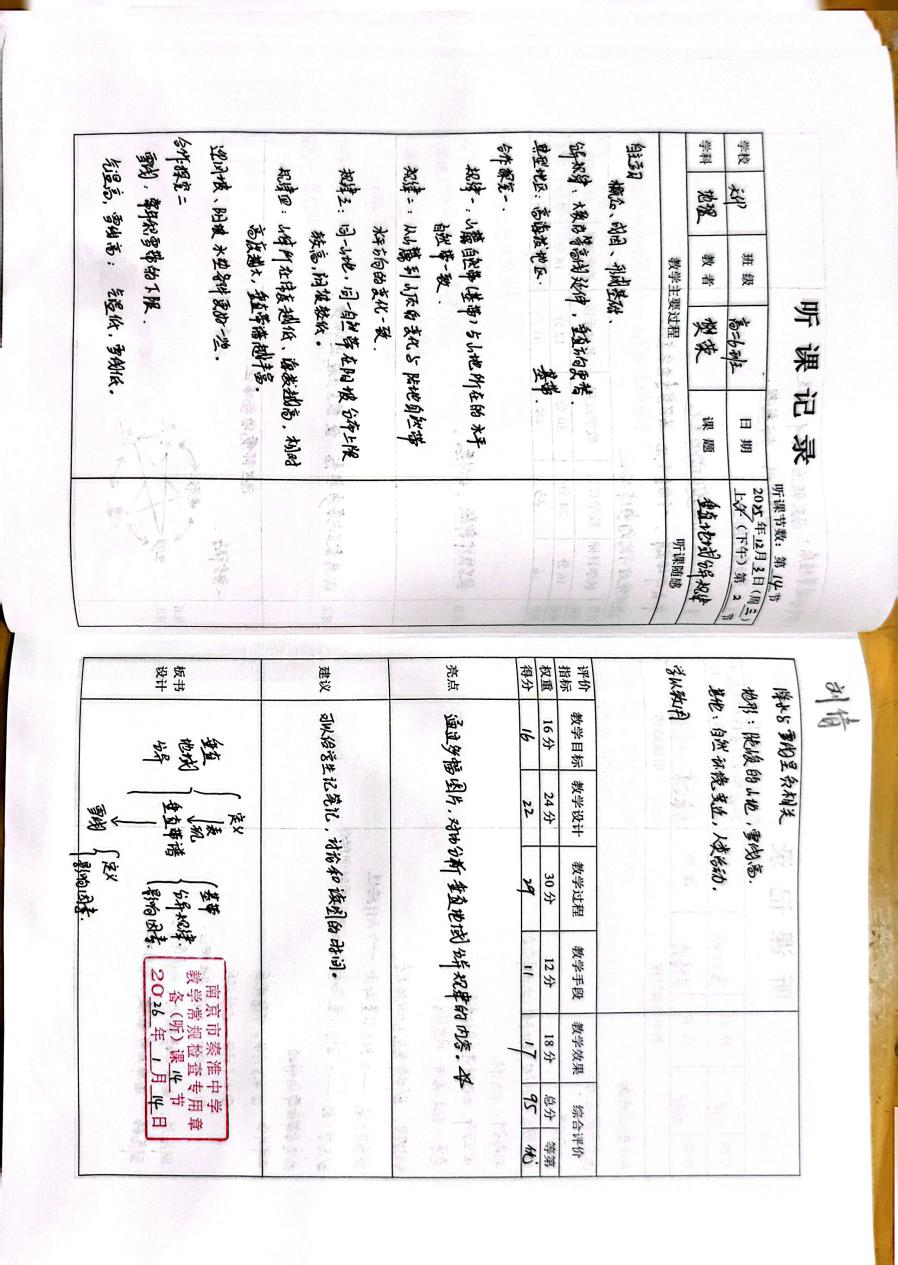 听课记录
听课节数：第14节
学校 班级 高二6班 日期 2025年12月3日（周三）
上午（下午）第2节
学科 地理 教者 樊荣 课题 垂直地域分异规律
教学主要过程 听课随感
自主学习
概念、成因、形成基础、
分异规律、大致沿等高线延伸，垂直方向更替.
典型地区：高海拔地区. 基带.
合作探究一.
规律一：山麓自然带（基带）与山地所在的水平
自然带一致.
规律二：从山麓到山顶的变化与陆地自然带
水平方向的变化一致.
规律三：同一山地，同一自然带在阳坡分布上限
较高，阴坡较低。
规律四：山体所在纬度越低、海拔越高，相对
高度越大，垂直带谱越丰富。
迎风坡、阴坡 水热条件更好一些。
合作探究二
雪线：常年积雪带的下限.
气温高，雪线高； 气温低，雪线低。
刘倩
降水与雪线呈负相关
地形：陡峻的山地，雪线高.
其他：自然环境变迁，人类活动.
学以致用
评价指标 教学目标 教学设计 教学过程 教学手段 教学效果 综合评价
权重 16分 24分 30分 12分 18分 总分 等第
得分 16 22 29 11 17 95 优
亮点 通过多幅图片，对比分析垂直地域分异规律的内容。
建议 可以给学生记笔记，讨论和读图的时间。
板书设计
垂直
地域
分异
定义
表现
垂直带谱
基带
分异规律
影响因素
雪线
定义
影响因素.
南京市秦淮中学
教学常规检查专用章
备（听）课14节
2026年1月14日